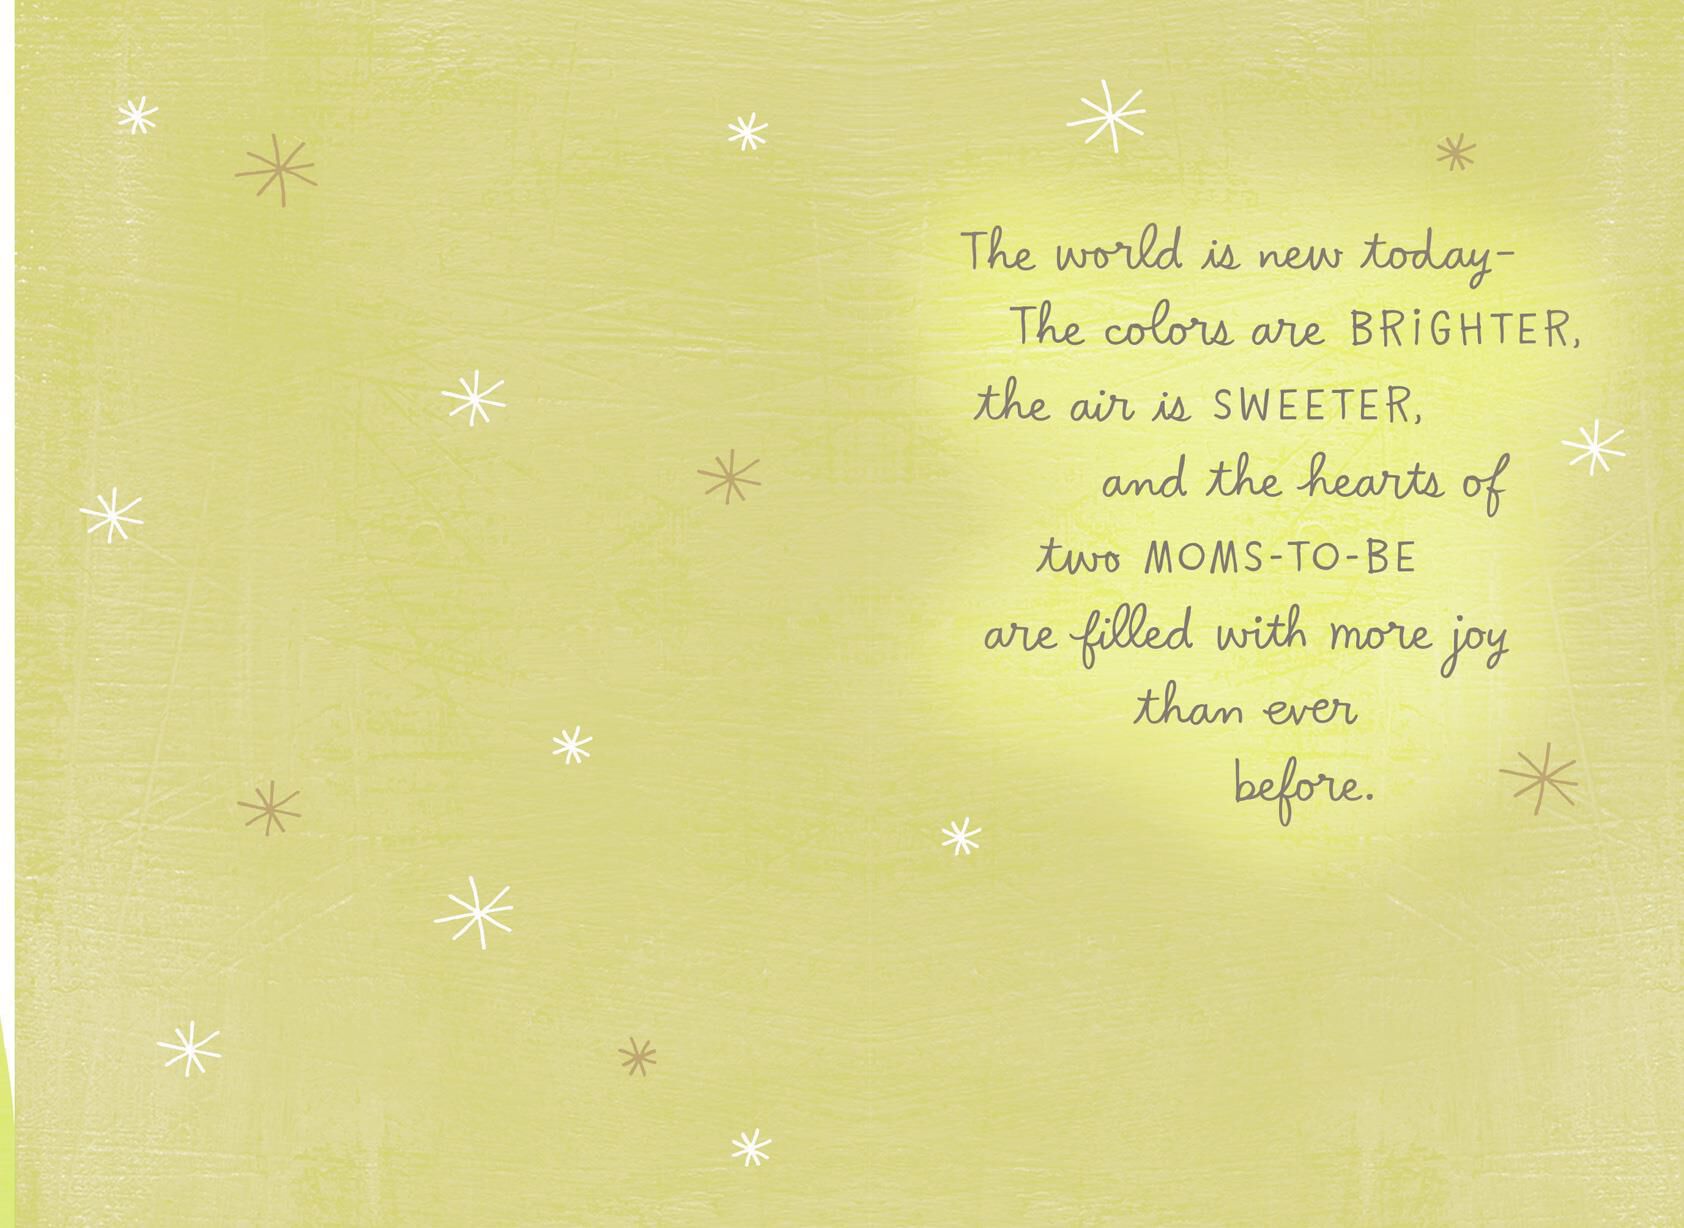 The world is new today-
The colors are BRiGHTER,
the air is SWEETER,
and the hearts of
two MOMS-TO-BE
are filled with more joy
than ever
before.